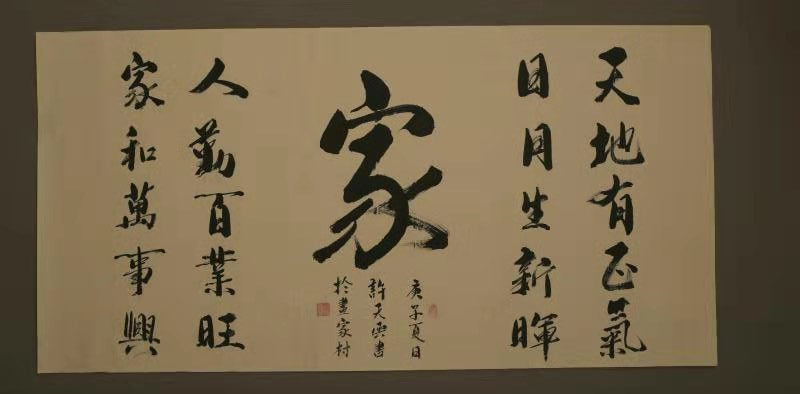 天地有正氣
日月生新暉
家
庚子夏日
許天雲書
於畫家村
人勤百業旺
家和萬事興